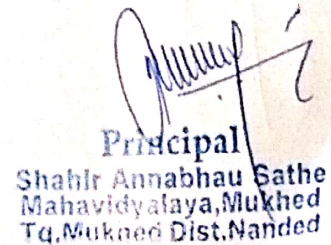 Principal
Shahir Annabhau Sathe
Mahavidyalaya,Mukhed
Tq.Mukhed Dist.Nanded